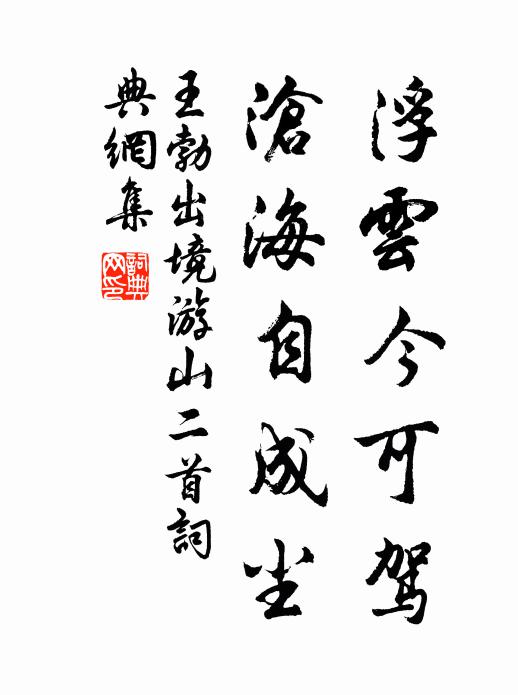 浮雲今可駕
滄海自成尘
王勃出境游山二首詞
典網集
詞典网印